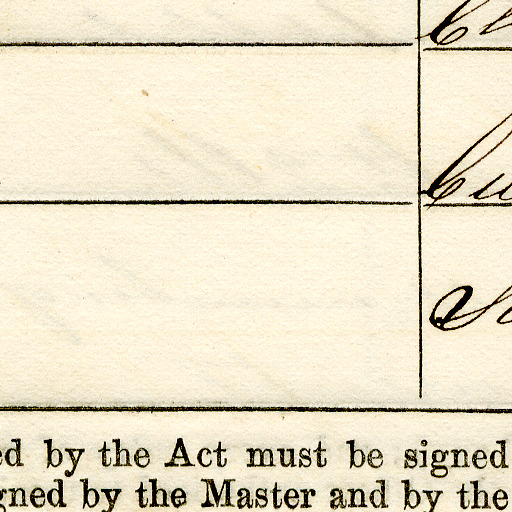 ed by the Act must be signed
gned by the Master and by the